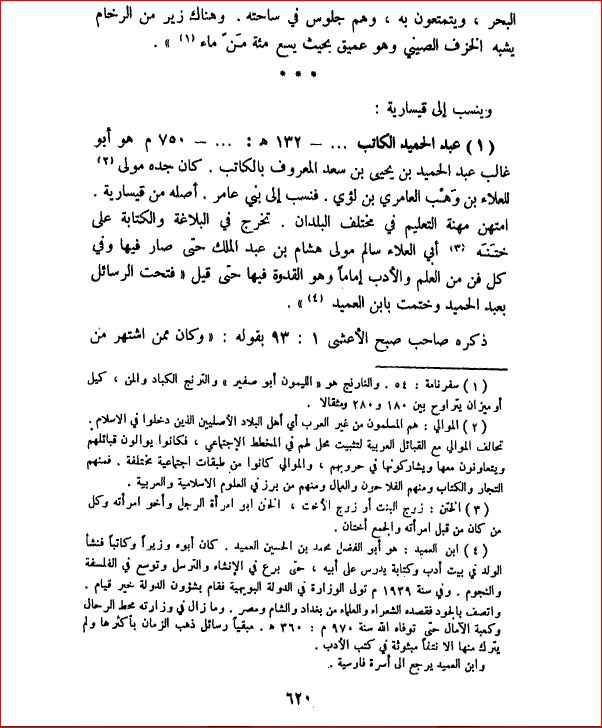 البحر ، ويتمتعون به ، وهم جلوس في ساحته . وهناك زير من الرخام
يشبه الخزف الصيني وهو عميق بحيث يسع مئة مَنّ ماء (١) » .
* * *
وينسب إلى قيسارية :
(١) عبد الحميد الكاتب ... – ١٣٢ ه : ... – ٧٥٠ م هو أبو
غالب عبد الحميد بن يحيى بن سعد المعروف بالكاتب . كان جده مولى (٢)
للعلاء بن وَهْب العامري بن لؤي . فنسب إلى بني عامر . أصله من قيسارية .
امتهن مهنة التعليم في مختلف البلدان . تخرج في البلاغة والكتابة على
خَتَنَه (٣) أبي العلاء سالم مولى هشام بن عبد الملك حتى صار فيها وفي
كل فن من العلم والأدب إماماً وهو القدوة فيها حتى قيل « فتحت الرسائل
بعبد الحميد وختمت بابن العميد (٤) » .
ذكره صاحب صبح الأعشى ١ : ٩٣ بقوله : « وكان ممن اشتهر من
(١) سفرنامة : ٥٤ . والنارنج هو « الليمون أبو صفير » والترنج الكباد والمن ، كيل
أو ميزان يتراوح بين ١٨٠ و ٢٨٠ ومثقالا .
(٢) الموالي : هم المسلمون من غير العرب أي أهل البلاد الأصليين الذين دخلوا في الاسلام .
تحالف الموالي مع القبائل العربية لتثبيت محل لهم في المخطط الإجتماعي ، فكانوا يوالون قبائلهم
ويتعاونون معها ويشاركونها في حروبهم ، والموالي كانوا من طبقات اجتماعية مختلفة . فمنهم
التجار والكتاب ومنهم الفلاحون والعمال ومنهم من برز في العلوم الاسلامية والعربية .
(٣) الختن : زوج البنت أو زوج الأخت ، الختن ابو امرأة الرجل وأخو امرأته وكل
من كان من قبل امرأته والجمع أختان .
(٤) ابن العميد : هو أبو الفضل محمد بن الحسين العميد . كان أبوه وزيراً وكاتباً فنشأ
الولد في بيت أدب وكتابة يدرس على أبيه ، حتى برع في الإنشاء والترسل وتوسع في الفلسفة
والنجوم . وفي سنة ١٩٣٩ م تولى الوزارة في الدولة البويهية فقام بشؤون الدولة خير قيام .
واتصف بالجود فقصده الشعراء والعلماء من بغداد والشام ومصر . وما زال في وزارته محط الرحال
وكعبة الآمال حتى توفاه الله سنة ٩٧٠ م : ٣٦٠ ه . مبقياً رسائل ذهب الزمان بأكثرها ولم
يترك منها الا نتفاً مبثوثة في كتب الأدب .
وابن العميد يرجع الى أسرة فارسية .
٦٢٠